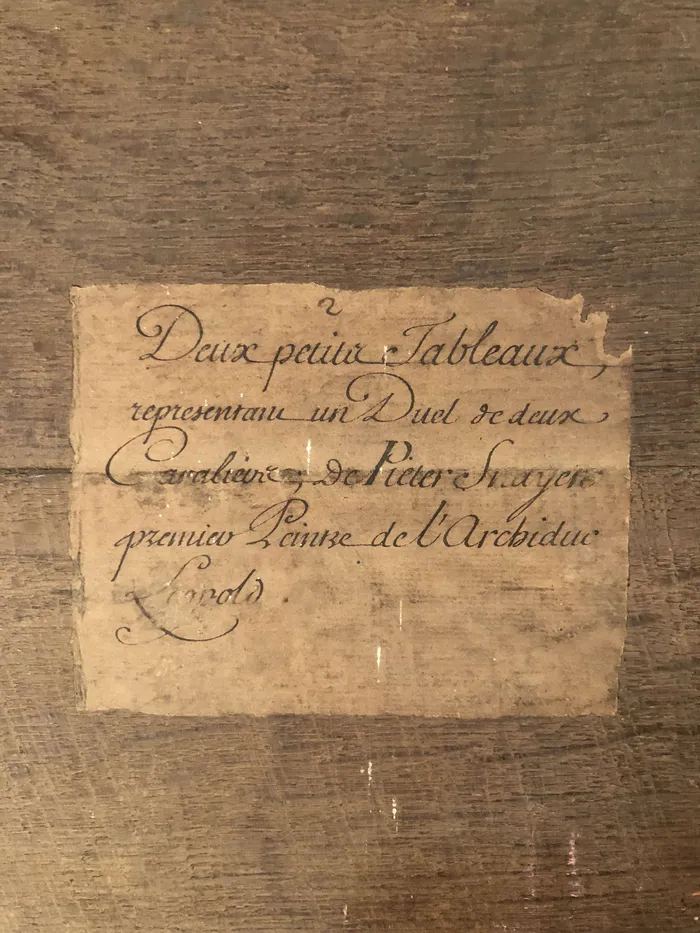 2
Deux petits Tableaux,
representant un Duel de deux
Cavaliers; De Pieter Snayers
premier Peintre de l'Archiduc
Leopold.